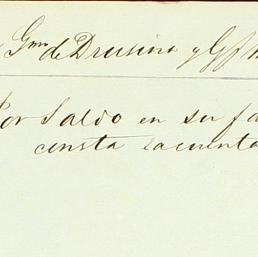 Gmo de Drusina y
Por Saldo en su fa
consta la cuenta